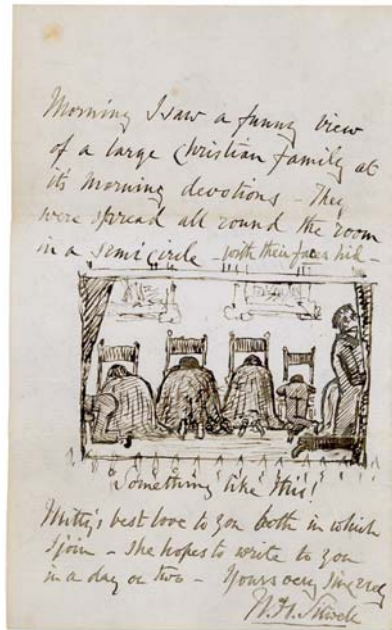 Morning I saw a funny view
of a large Christian family at
its morning devotions – They
were spread all round the room
in a semi circle – with their faces hid –
Something like this!
Mitty's best love to you both in which
I join – She hopes to write to you
in a day or two – Yours very sincerely
W. H.